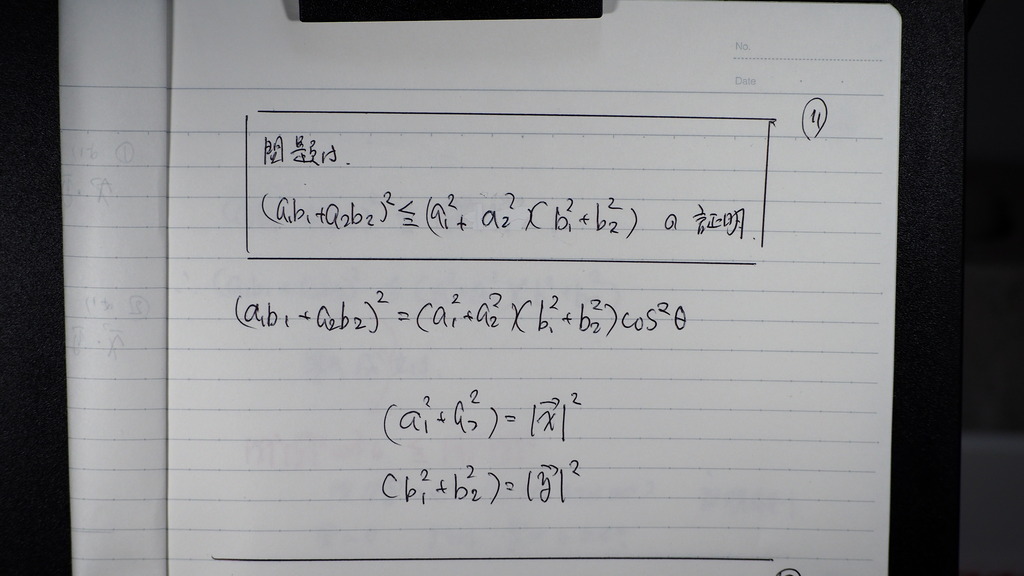 No.
Date
④
問題は.
(a₁b₁+a₂b₂)² ≦ (a₁²+a₂²)(b₁²+b₂²) の証明.
(a₁b₁+a₂b₂)² = (a₁²+a₂²)(b₁²+b₂²)cos²θ
(a₁²+a₂²) = |x⃗|²
(b₁²+b₂²) = |y⃗|²